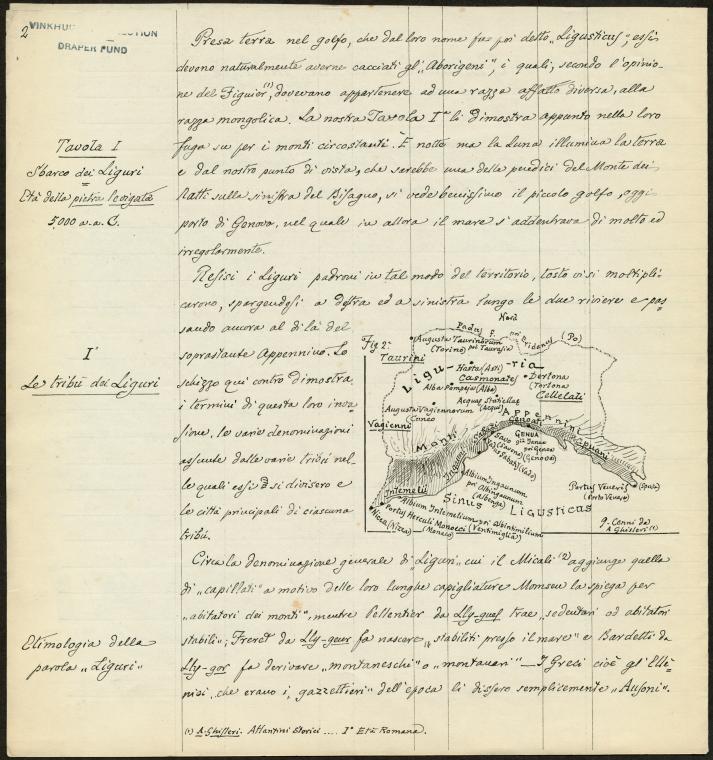 2
VINKHUI
CTION
DRAPER FUND
Presa terra nel golfo, che dal loro nome fu poi detto „Ligusticus", essi
devono naturalmente averne cacciati gl' „Aborigeni", i quali, secondo l'opinio-
ne del Figuier (1), dovevano appartenere ad una razza affatto diversa, alla
razza mongolica. La nostra Tavola Iª li dimostra appunto nella loro
fuga su per i monti circostanti. È notte ma la Luna illumina la terra
e dal nostro punto di vista, che sarebbe una delle pendici del Monte dei
Ratti sulla sinistra del Bisagno, si vede benissimo il piccolo golfo, oggi
porto di Genova, nel quale in allora il mare s'addentrava di molto ed
irregolarmente.
Tavola I
Sbarco dei Liguri
Età della pietra levigata
5,000 a.a.C.
Resisi i Liguri padroni in tal modo del territorio, tosto vi si moltipli-
carono, spargendosi a destra ed a sinistra lungo le due riviere e pas
sando ancora al di là del
soprastante Appennino. Lo
schizzo qui contro dimostra
i termini di questa loro inva
sione, le varie denominazioni
assunte dalle varie tribù nel-
le quali essi si divisero e
le città principali di ciascuna
tribù.
I°
Le tribù dei Liguri
Fig 2ª
Nord
Padus F. poi Eridanus (Po)
Augusta Taurinorum
(Torino) poi Taurasia
Taurini
Ligu-ria
Hasta (Asti)
Casmonates
Dertona
(Tortona
Alba Pompeja (Alba)
Cellelati
Aquae Statiellae
(Acqui)
Augusta Vagiennorum
(Cuneo
Vagienni
Monti
APPENNINI
Genoati
GENUA
già Janua
poi Genoa
(Genova)
Savo
(Savona)
Vadis Sabatj (Vado)
Sabazi
Ingauni
Apuani
Albium Ingaunum
poi Albingaunum
(Albenga)
Portus Veneris
(Porto Venere)
(Spezia)
Intemelii
Sinus LIGUSTICUS
Albium Intemelium poi Albintimilium
(Ventimiglia)
Portus Herculi Monoeci
(Monaco)
Nicea (Nizza)
g. Cenni da
A Ghisleri (1)
Circa la denominazione generale di „Liguri" cui il Micali (2) aggiunge quella
di „capillati" a motivo delle loro lunghe capigliature Monseu la spiega per
„abitatori dei monti", mentre Pellentier da Lly-gues trae „sedentari od abitatori
stabili"; Freret da Lly-gour fa nascere „stabiliti presso il mare" e Bardetti da
Lly-gor fa derivare „montaneschi" o „montanari" — I Greci cioè gl'Elle-
nisi, che erano i „gazzettieri" dell'epoca li dissero semplicemente „Ausoni".
Etimologia della
parola „Liguri"
(1) A. Ghisleri. Atlantini Storici .... I° Età Romana.